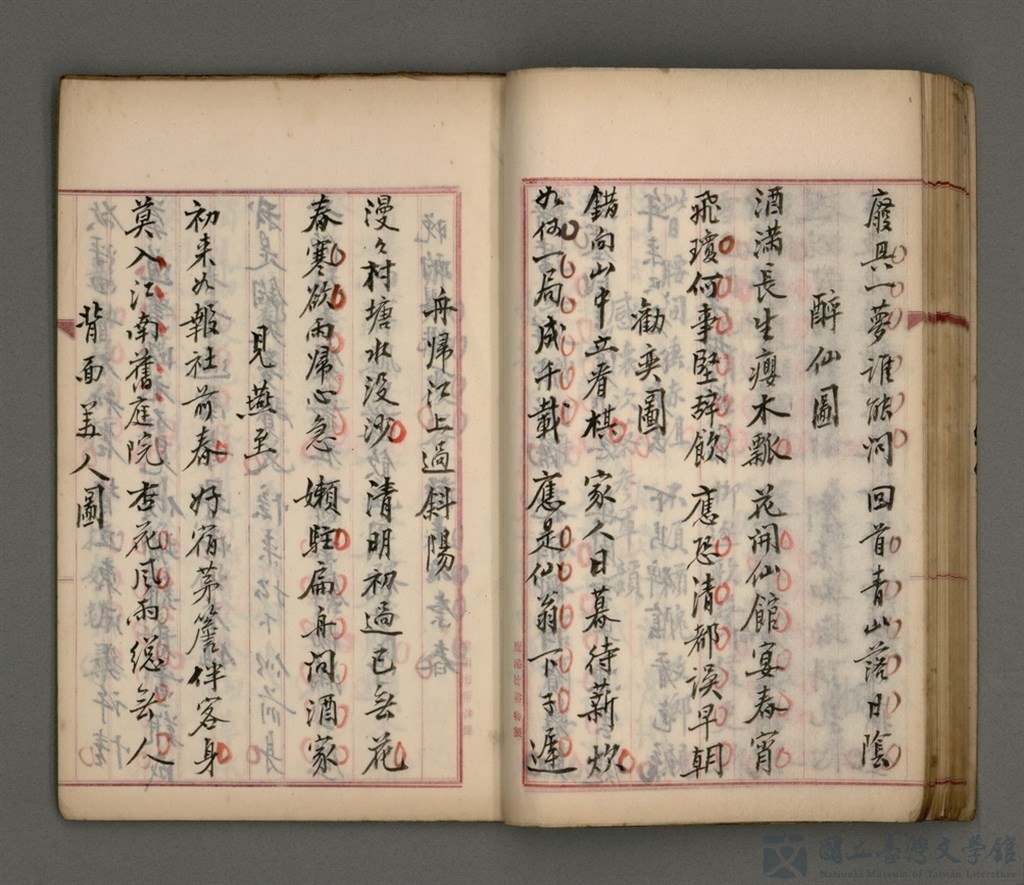 廢興一夢誰能问 回首青山落日陰
醉仙圖
酒滿長生癭木瓢 花開仙館宴春宵
飛瓊何事堅辞飲 應恐清都误早朝
觀奕圖
錯向山中立看棋 家人日暮待薪炊
如何一局成千載 應是仙翁下子遲
舟归江上過斜陽
漫々村塘水没沙 清明初過已無花
春寒欲雨归心急 嬾駐扁舟问酒家
見燕至
初来如報社前春 好宿茅簷伴客身
莫入江南舊庭院 杏花风雨總無人
背面美人圖
國立臺灣文學館
National Museum of Taiwan Literature